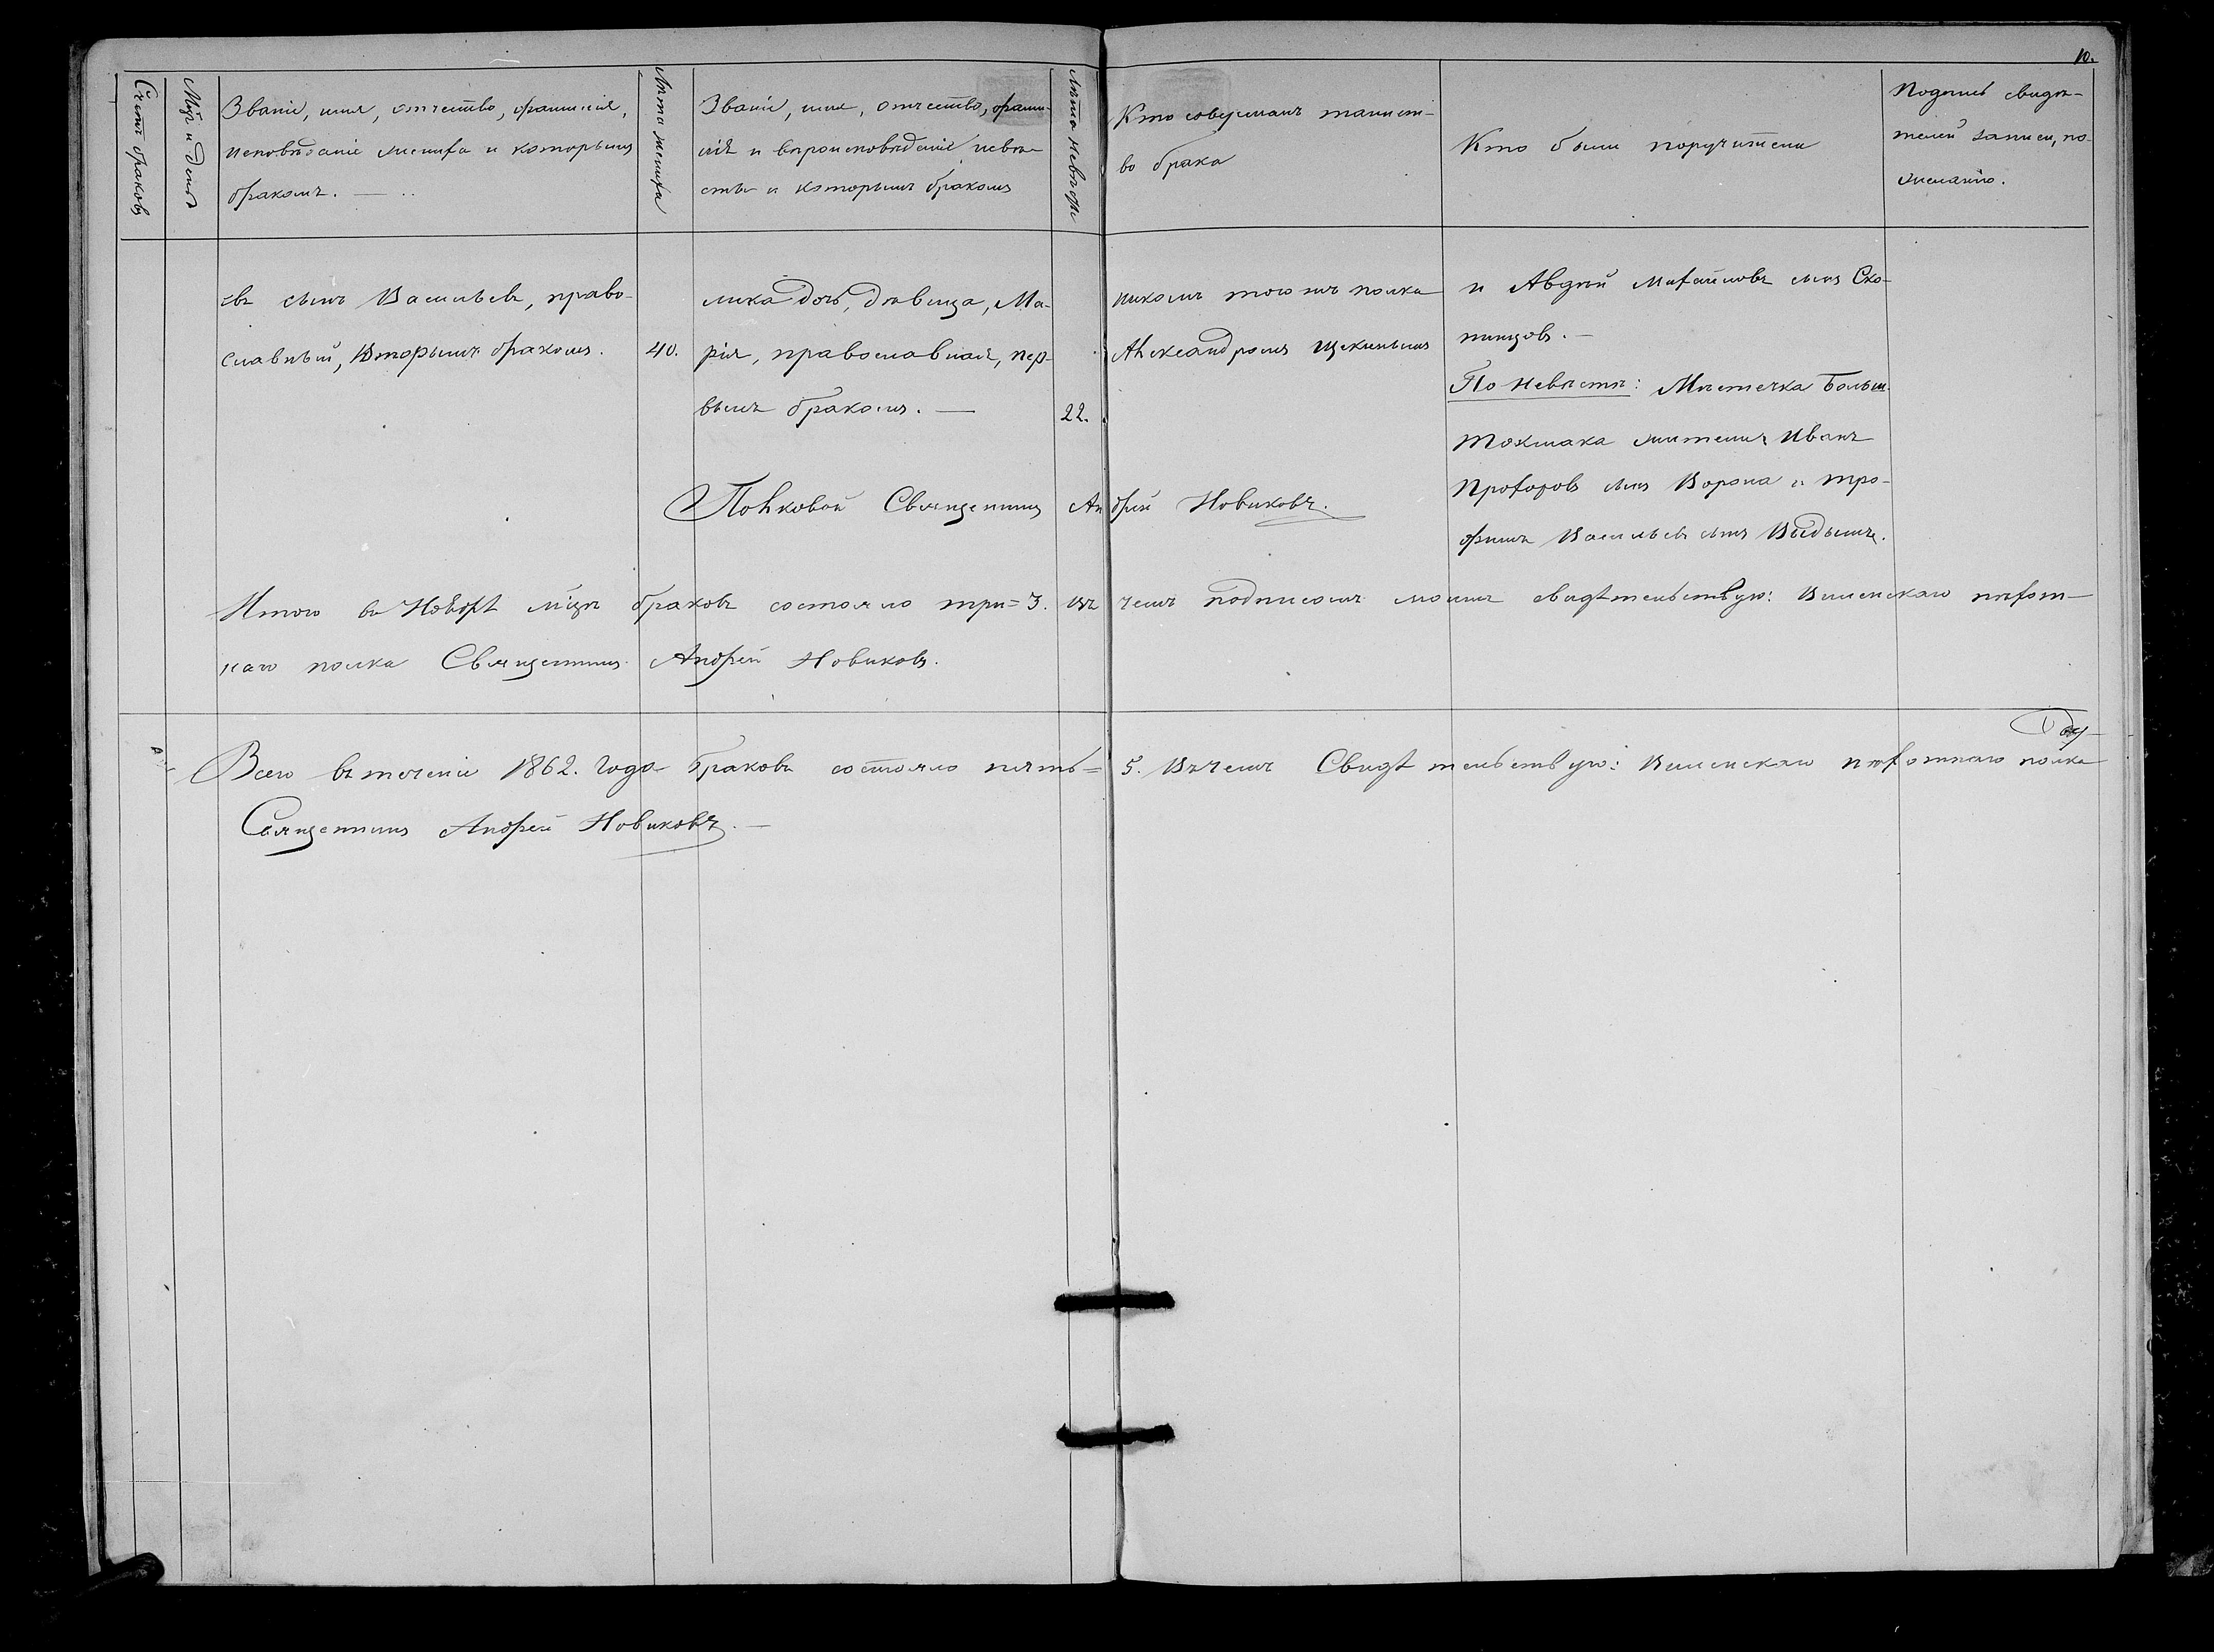 10.
Счетъ браковъ
Мѣсяцъ и день
Званіе, имя, отчество, фамилія,
исповѣданіе жениха и которымъ
бракомъ.
Лѣта жениха
Званіе, имя, отчество, фами-
лія и вѣроисповѣданіе невѣ-
сты и которымъ бракомъ
Лѣта невѣсты
Кто совершалъ таинст-
во брака
Кто были поручители
Подпись свидѣ-
телей записи, по
желанію.
евъ сынъ Васильевъ, право-
славный, вторымъ бракомъ.
40.
лика дочь, дѣвица, Ма-
рія, православная, пер-
вымъ бракомъ. —
22.
никомъ того же полка
Александромъ Щекинымъ
и Авдѣй Михайловъ сынъ Ско-
пинцовъ. —
По невѣстѣ: Мѣстечка Больш.
Токмака житель Иванъ
Прохоровъ сынъ Ворона и Тро-
фимъ Васильевъ сынъ
Полковой Священникъ Андрей Новиковъ.
Итого въ Ноябрѣ мѣсяцѣ браковъ состояло три = 3. въ чемъ подписомъ моимъ свидѣтельствую: Виленскаго пѣхот-
наго полка Священникъ Андрей Новиковъ.
Всего въ теченіе 1862. года браковъ состояло пять = 5. Въ чемъ Свидѣтельствую: Виленскаго пѣхотнаго полка
Священникъ Андрей Новиковъ. —